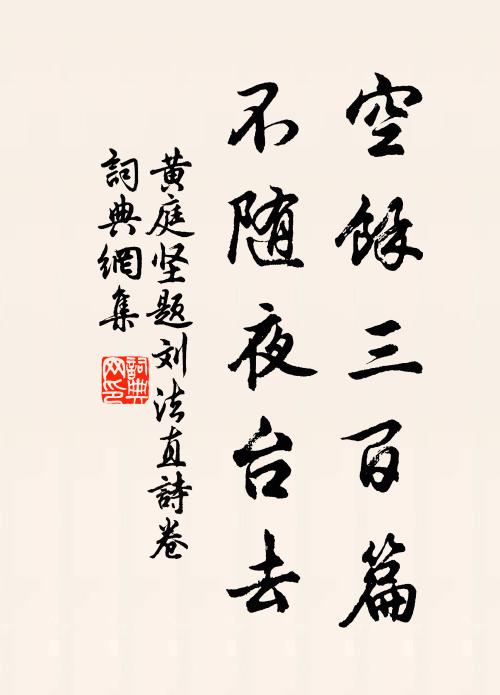 空餘三百篇
不随夜台去
黄庭坚题刘法直詩卷
詞典網集
詞典網印